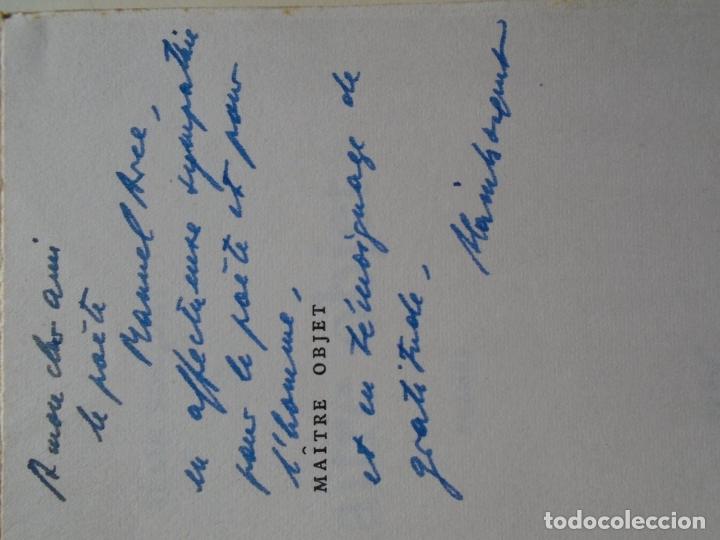 A mon cher ami
le poète
Manuel Arce,
en affectueuse sympathie
pour le poète et pour
l'homme,
MAÎTRE OBJET
et en témoignage de
gratitude,
Alain Bosquet
todocoleccion.net